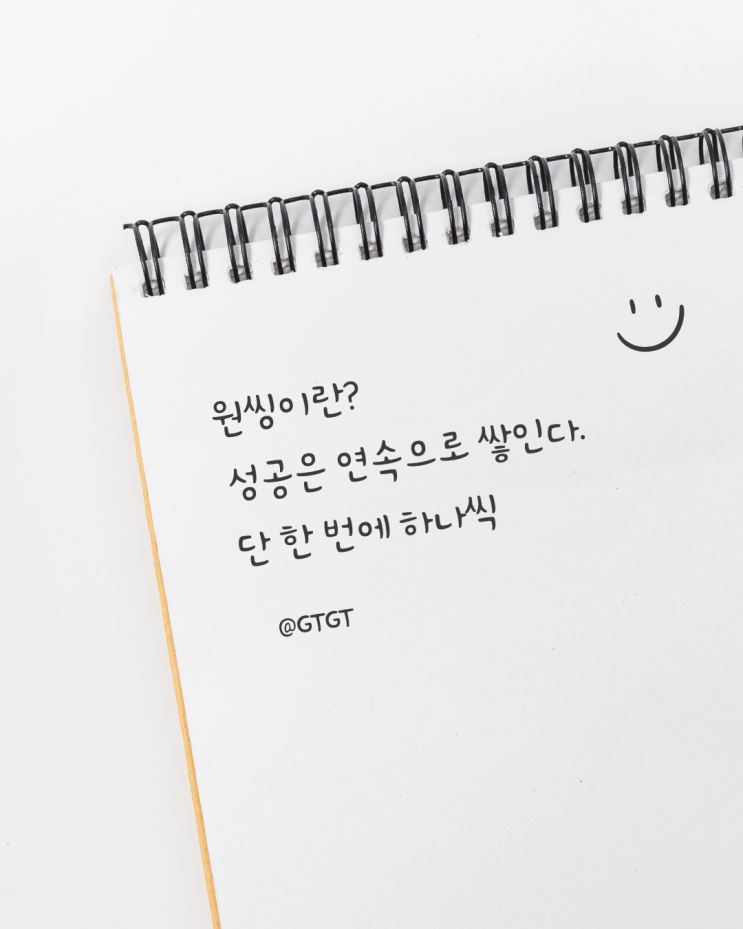 원씽이란?
성공은 연속으로 쌓인다.
단 한 번에 하나씩
@GTGT